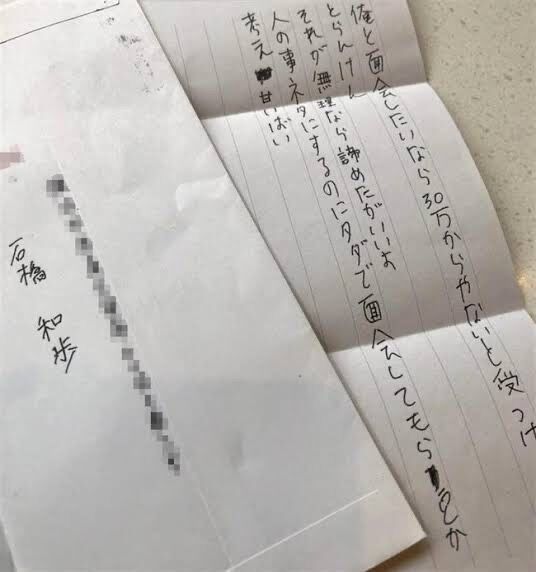 俺と面会したいなら30万からやないと受つけ
とらんけん
それが無理なら諦めたがいいよ
人の事ネタにするのにタダで面会してもらえとか
考え甘いばい
石橋 和歩